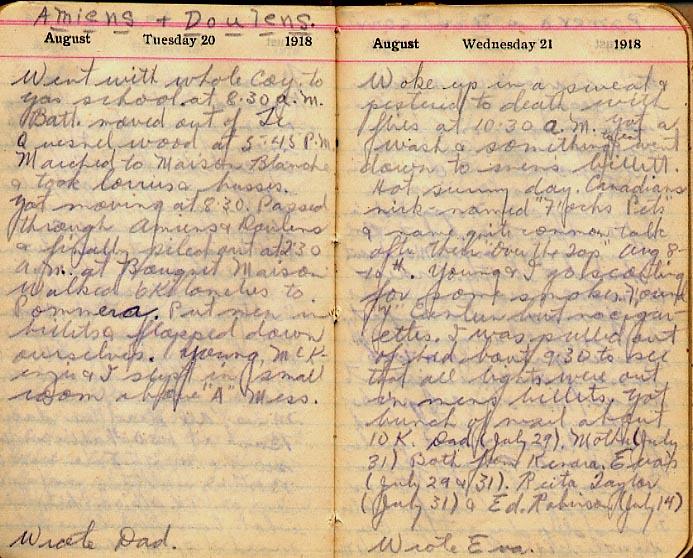 Amiens & Doulens.
August Tuesday 20 1918
Went with whole Coy to
gas school at 8:30 a.m.
Batt. moved out of Le
Quesnel wood at 5:45 P.M.
Marched to Maison Blanche
& took lorries & busses.
Got moving at 8:30. Passed
through Amiens & Doulens
& finally piled out at 2:30
a.m. at Bouquet Maison
Walked 6 Kilometres to
Pommera. Put men in
billets & flopped down
ourselves. Young, McK-
enzie & I slept in small
room above "A" Mess.
Wrote Dad.
August Wednesday 21 1918
Woke up in a sweat &
pestered to death with
flies at 10:30 a.m. Got a
wash & something to eat & went
down to men's billett.
Hot sunny day. Canadians
nick-named "Foch's Pets"
& name quite common talk
after their "Over the Top" Aug 8-
10th. Young & I go scouting
for some smokes. Found
Y. Canteen but no cigar-
ettes. I was pulled out
of bed bout 9:30 to see
that all lights were out
in mens billets. Got
bunch of mail about
10 K. Dad (July 29). Mother (July
31) Both from Kenora. Eva's
(July 29 & 31). Reita Taylor
(July 31) & Ed. Robinson (July 14)
Wrote Eva.